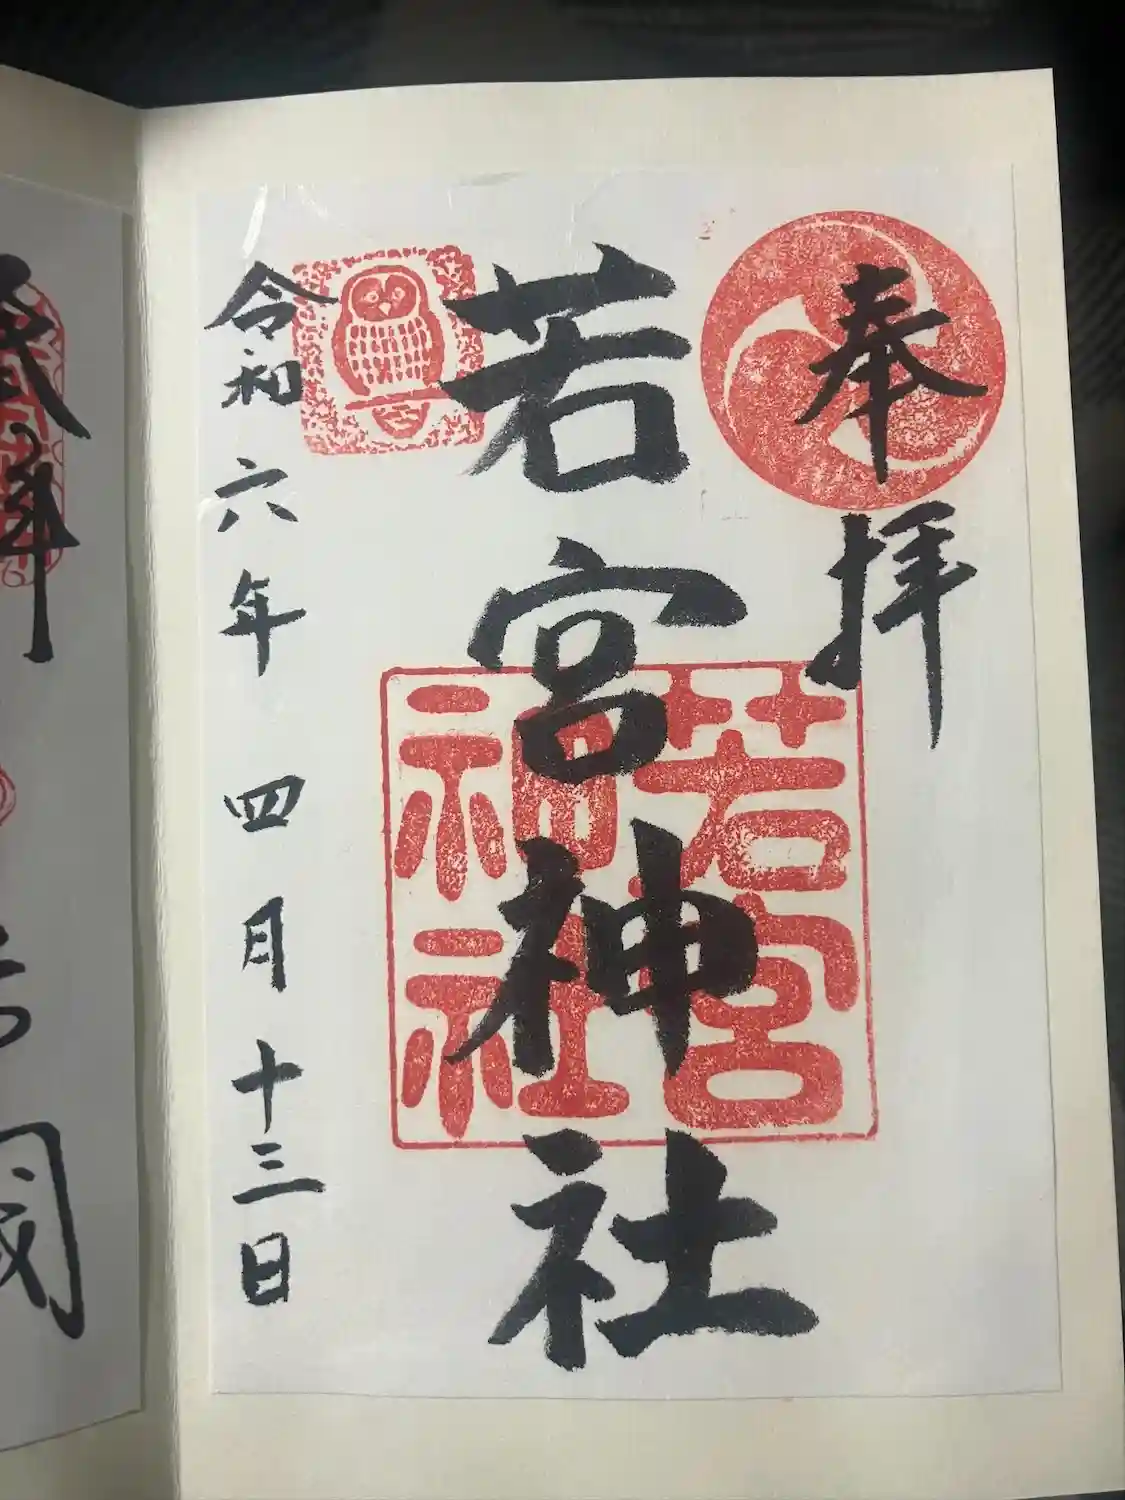 奉拝
若宮神社
若宮
神社
令和六年四月十三日